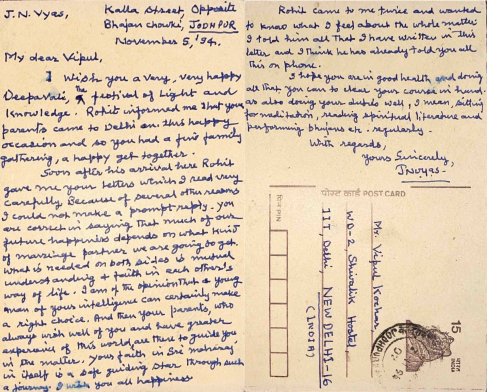 J.N. Vyas,
Kalla Street, Opposite
Bhajan Chowki, JODHPUR
November 5, '94.
My dear Vipul,
I wish you a very, very happy
Deepavali, the festival of Light and
Knowledge. Rohit informed me that your
parents came to Delhi on this happy
occasion and so you had a fine family
gathering, a happy get together.
Soon after his arrival here Rohit
gave me your letters which I read very
carefully. Because of several other reasons
I could not make a prompt reply. You
are correct in saying that much of our
future happiness depends on what kind
of marriage partner we are going to get.
What is needed on both sides is mutual
understanding & faith in each other's
way of life. I am of the opinion that a young
man of your intelligence can certainly make
a right choice. And then your parents, who
always wish well of you and have greater
experience of this world, are there to guide you
in the matter. Your faith in Sri
in itself is a safe guiding star through such
a journey. I wish you all happiness
Rohit came to me twice and wanted
to know what I feel about the whole matter
I told him all that I have written in this
letter, and I think he has already told you all
this on phone.
I hope you are in good health and doing
all that you can to clear your course in hand
as also doing your duties well, I mean, sitting
for meditation, reading spiritual literature and
performing bhajans etc. regularly.
With regards,
Yours Sincerely,
JNVyas
पोस्ट कार्ड POST CARD
Mr. Vipul Kochar
WD-2, Shivalik Hostel,
IIT, Delhi, NEW DELHI-16
(INDIA)
पिन PIN
15
भारत
INDIA